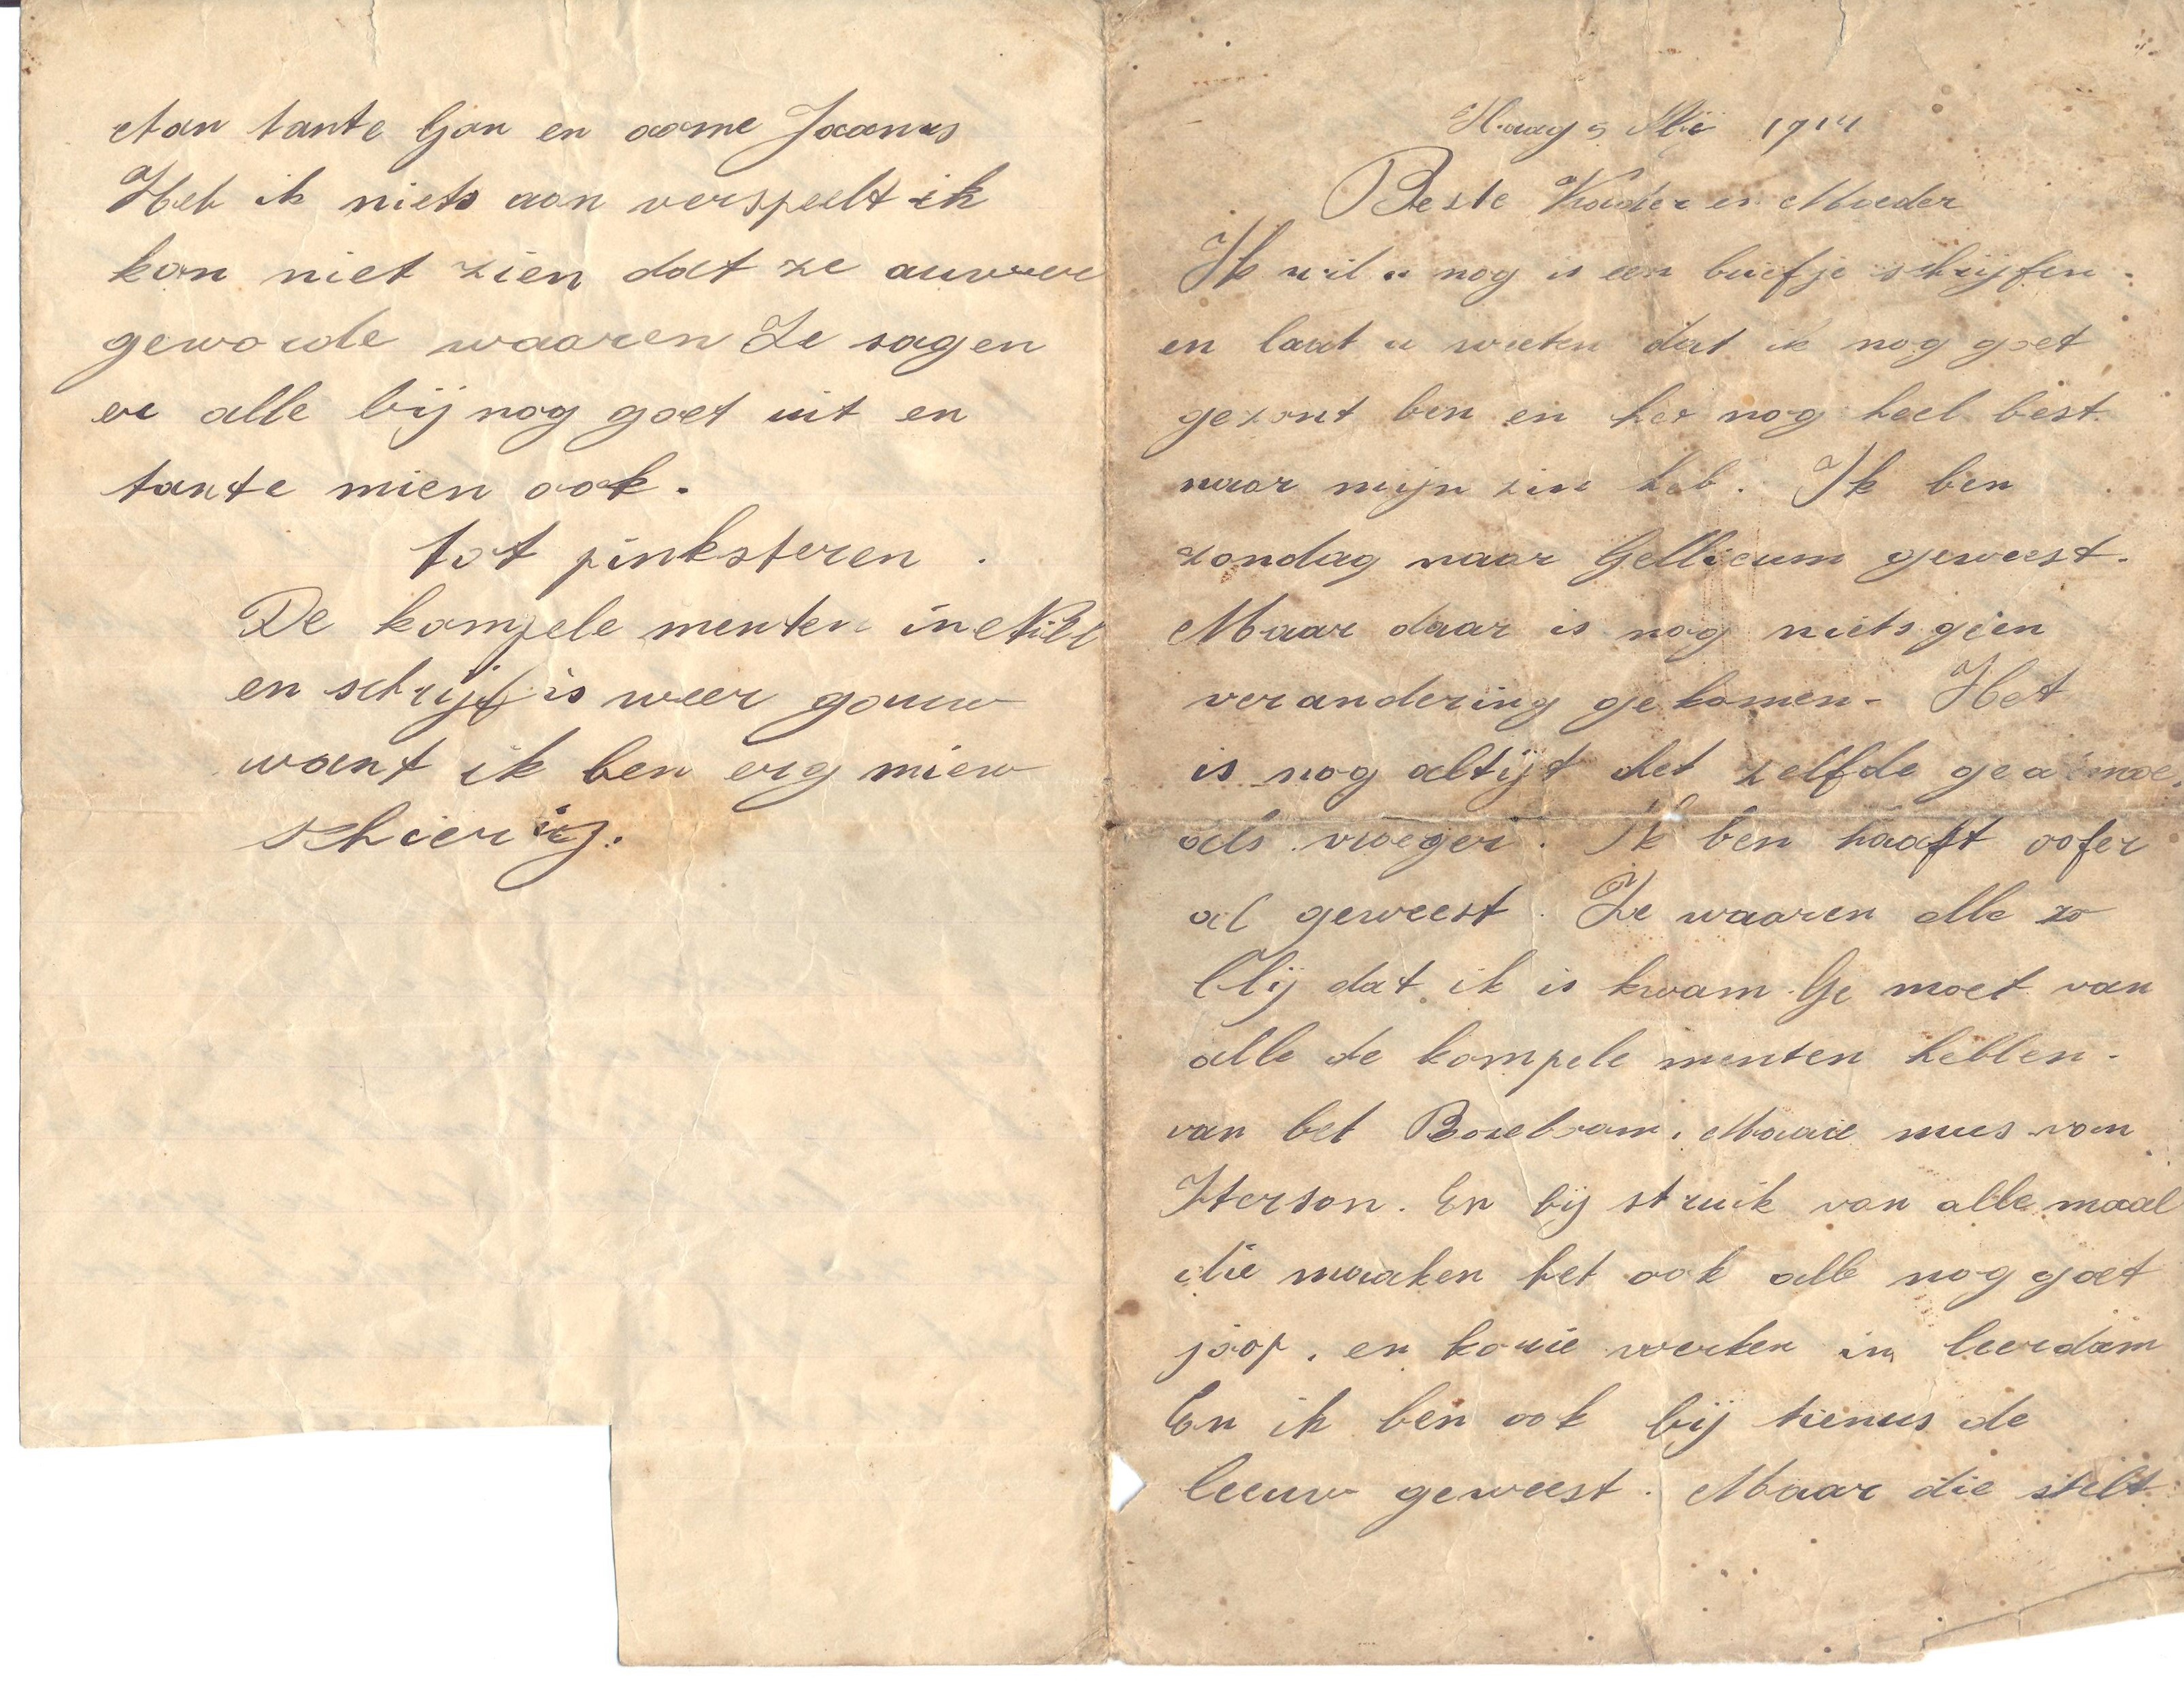 Haag 5 Mij 1914
Beste Vader en Moeder
Ik wil u nog is een briefje schrijfen.
en laat u weeten dat ik nog goet
gezont ben en het nog heel best
naar mijn zin heb. Ik ben
zondag naar Gellicum geweest.
Maar daar is nog niets geen
verandering gekomen - Het
is nog altijt det zelfde
als vroeger. Ik ben haast oofer
al geweest. Ze waaren alle zo
blij dat ik is kwam. Ge moet van
alle de kompele menten hebben.
van bet Bozeboom. mus van
Iterson. En bij struik van alle maal
die maaken het ook alle nog goet
jaap. en werken in leerdam
En ik ben ook bij tienus de
leeuw geweest. Maar die stelt
Aan tante Gon en oome Jaanus
Heb ik niets aan verspeelt ik
kan niet zien dat ze auwer
geworde waaren Ze sagen
er alle bij nog goet uit en
tante mien ook.
tot pinksteren.
De kompele menten in
en schrijf is weer gouw
want ik ben erg niew
schierig.